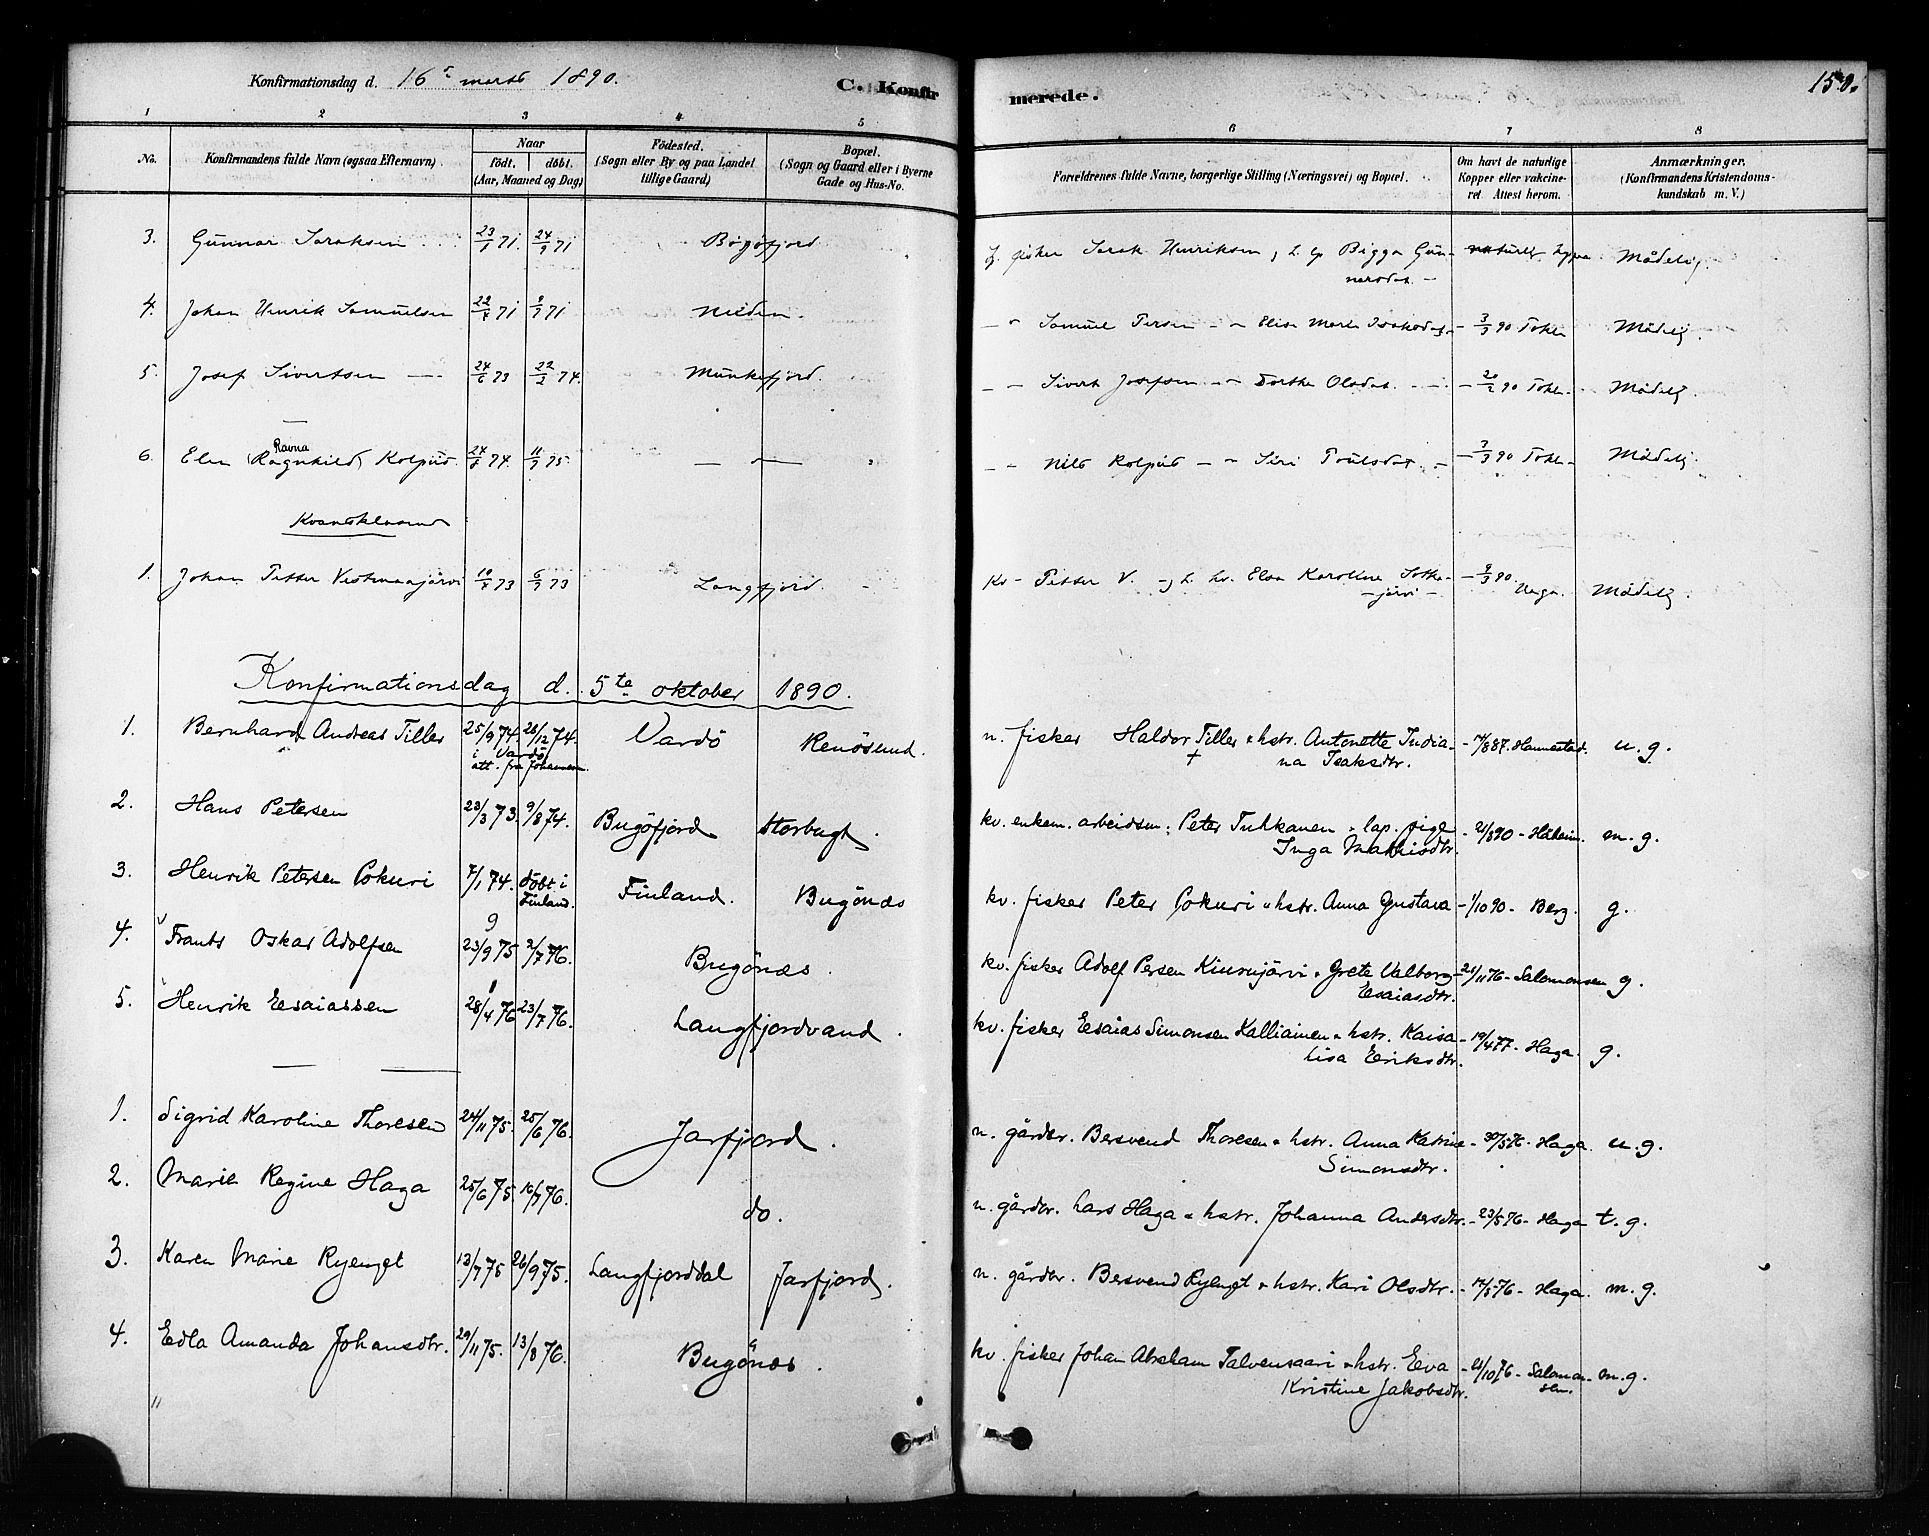 Konfirmationsdag d. 16de marts 1890.
C. Konfirmerede.
150.
1 2 3 4 5 6 7 8
No.
Konfirmandens fulde Navn (ogsaa Efternavn).
Naar
födt. döbt.
(Aar, Maaned og Dag)
Födested.
(Sogn eller By og paa Landet
tillige Gaard)
Bopæl.
(Sogn og Gaard eller i Byerne
Gade og Hus-No.
Forældrenes fulde Navne, borgerlige Stilling (Næringsvei) og Bopæl.
Om havt de naturlige
Kopper eller vakcine-
ret Attest herom.
Anmærkninger.
(Konfirmandens Kristendoms-
kundskab m. V.)
3. Gunnar Saraksen 23/1 71. 24/9 71 Bögöfjord f. fisker Sarak Henriksen, h. lp Bigga Gun- Mådelig.
narsdat. -
4. Johan Henrik Samuelsen 22/4 71 9/7 71 Neiden. - " Samuel Persen - " Elisa Marh Isaksdat - 3/3 90 Mådelig.
5. Josef Sivertsen 24/6 73 22/2 74. Munkefjord. - - Sivert Josefsen - - Dorthe Olsdat. - 20/2 90 Mådelig.
Ravna
6. Elen (Ragnhild) Kolpus. 24/8 74. 11/7 75 - - - - Nils Kolpus - - Siri Poulsdat. - 3/3 90 Mådelig
1. Johan Petter Vestmaajärvi 10/4 73 6/7 73 Langfjord. Kv - Petter V. - h. kv. Elsa Karoline - 9/3 90. Haga. Mådelig.
-järvi -
Konfirmationsdag d. 5te oktober 1890.
1. Bernhard Andreas Tiller 25/9 74. 26/12 74. Vardö Renösund. n. fisker Haldor Tiller & hstr. Antonette India- - 17/8 87. Hannestad. u. g.
i Vardö
att. fra Johannesen.
† na Isaksdtr.
2. Hans Petersen 23/3 73. 9/8 74. Bugöfjord Storbugt. kv. enkem. arbeidsm. Peter Tuhkanen & lap. pige - 21/8 90 - m. g.
Inga Mathisdtr.
3. Henrik Petersen Pokuri 7/1 74. döbt i Finland. Bugönæs kv. fisker Peter Pokuri & hstr. Anna Gustava - 1/10 90 - Berg. g.
Finland.
9
4. Frants Oskar Adolfsen 23/9 75 2/7 76. Bugönæs. kv. fisker Adolf Persen Kiurujärvi & Grete Valborg - 21/11 76 - Salomonsen g.
Esaiasdtr.
5. Henrik Esaiassen 28/4 76 23/7 76. Langfjordvand. kv. fisker Esaias Simonsen Kalliainen & hstr. Kaisa - 19/4 77 - Haga. g.
Lisa Eriksdtr.
1. Sigrid Karoline Thoresen 24/11 75. 25/6 76. Jarfjord. n. gårdbr. Bersvend Thoresen & hstr. Anna Katrine - 30/5 76 - Haga. u. g.
Simonsdtr.
2. Marie Regine Haga 25/6 75 16/7 76. do. n. gårdbr. Lars Haga & hstr. Johanna Andersdtr. - 23/5 76 - Haga t. g.
3. Karen Marie Ryenget 13/7 75 26/9 75. Langfjorddal Jarfjord. n. gårdbr. Bersvend Ryenget & hstr. Kari Olsdtr. - 17/5 76 - Haga. m. g.
4. Edla Amanda Johansdtr. 29/11 75. 13/8 76. Bugönæs. kv. fisker Johan Abraham Talvensaari & hstr. Eeva - 21/10 76 - Salomon- m. g.
Kristine Jakobsdtr. sen.